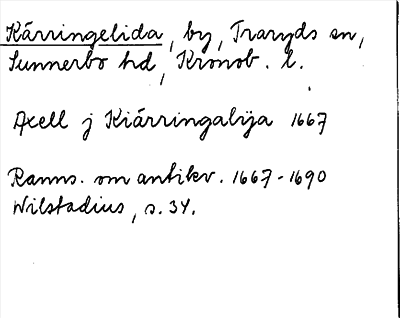 Kärringelida, by, Traryds sn,
Sunnerbo hd, Kronob. l.
Axell j Kiärringalija 1667
Ranns. om antikv. 1667-1690
Wilstadius, s. 34.